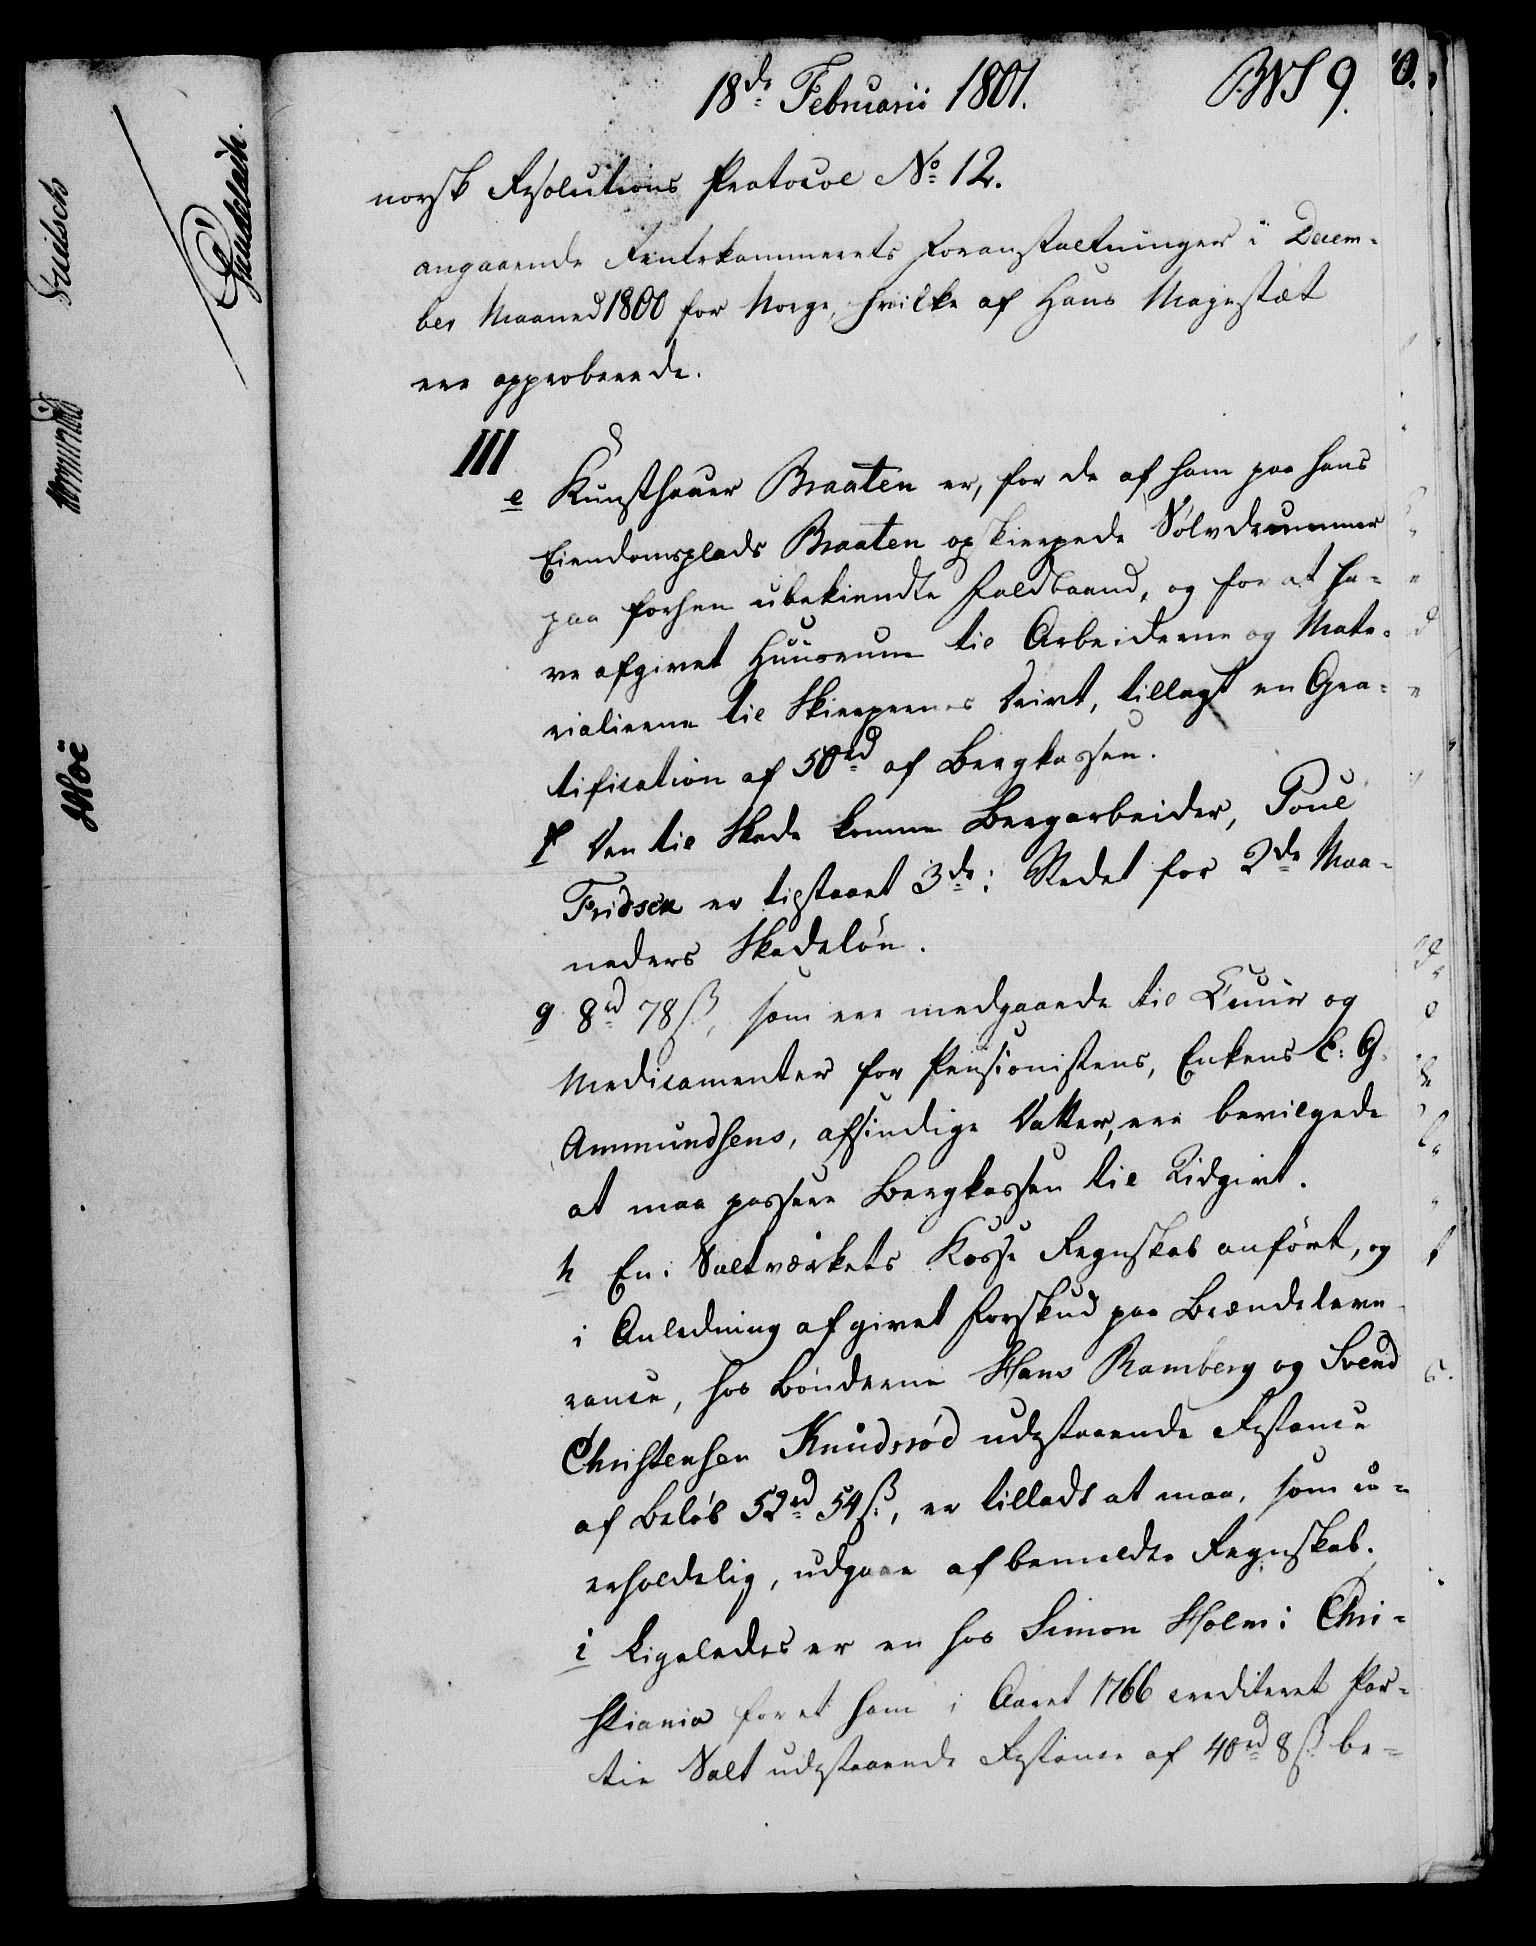 18de Februarii 1801.
BWS 9.
norsk Resolutions Protocol No 12.
angaaende Rentekammerets Foranstaltninger i Decem-
ber Maaned 1800 for Norge, hvilke af Hans Majestæt
ere approberede.
III
e Kunsthauer Braaten er, for de af ham paa hans
Eiendomsplads Braaten opskierpede Sølvdrummer
paa forhen ubekiendte Faldbaand, og for at ha-
ve afgivet Huusrum til Arbeiderne og Mate-
rialierne til Skierpernes Drivt, tillagt en Gra-
tification af 50 rd af Bergkassen.
f Den til Skade komne Bergarbeider, Poul
Fridsen er tilstaaet 3de: Stedet for 2de Maa-
neders Skadeløn.
g 8 rd 78 ß, som ere medgaaede til Cuur og
Medicamenter for Pensionistens, Enkens E: G.
Ammundsens, afsindige Datter, ere bevilgede
at maa passere Bergkassen til Udgivt.
h En i Saltværkets Kasse Regnskab anført, og
i Anledning afgivet Forskud paa Brændeleve-
rance, hos Bønderne Hans Ramberg og Svend
Christensen Knudsrød udestaaende Restance
af Beløb 52 rd 54 ß., er tilladt at maa, som u-
erholdelig, udgaae af bemeldte Regnskab.
i Ligeledes er en hos Simon Holm i Chri-
stiania for et ham i Aaret 1766 crediteret Par-
tie Salt udestaaende Restance af 40 rd 8 ß. be-
Moe